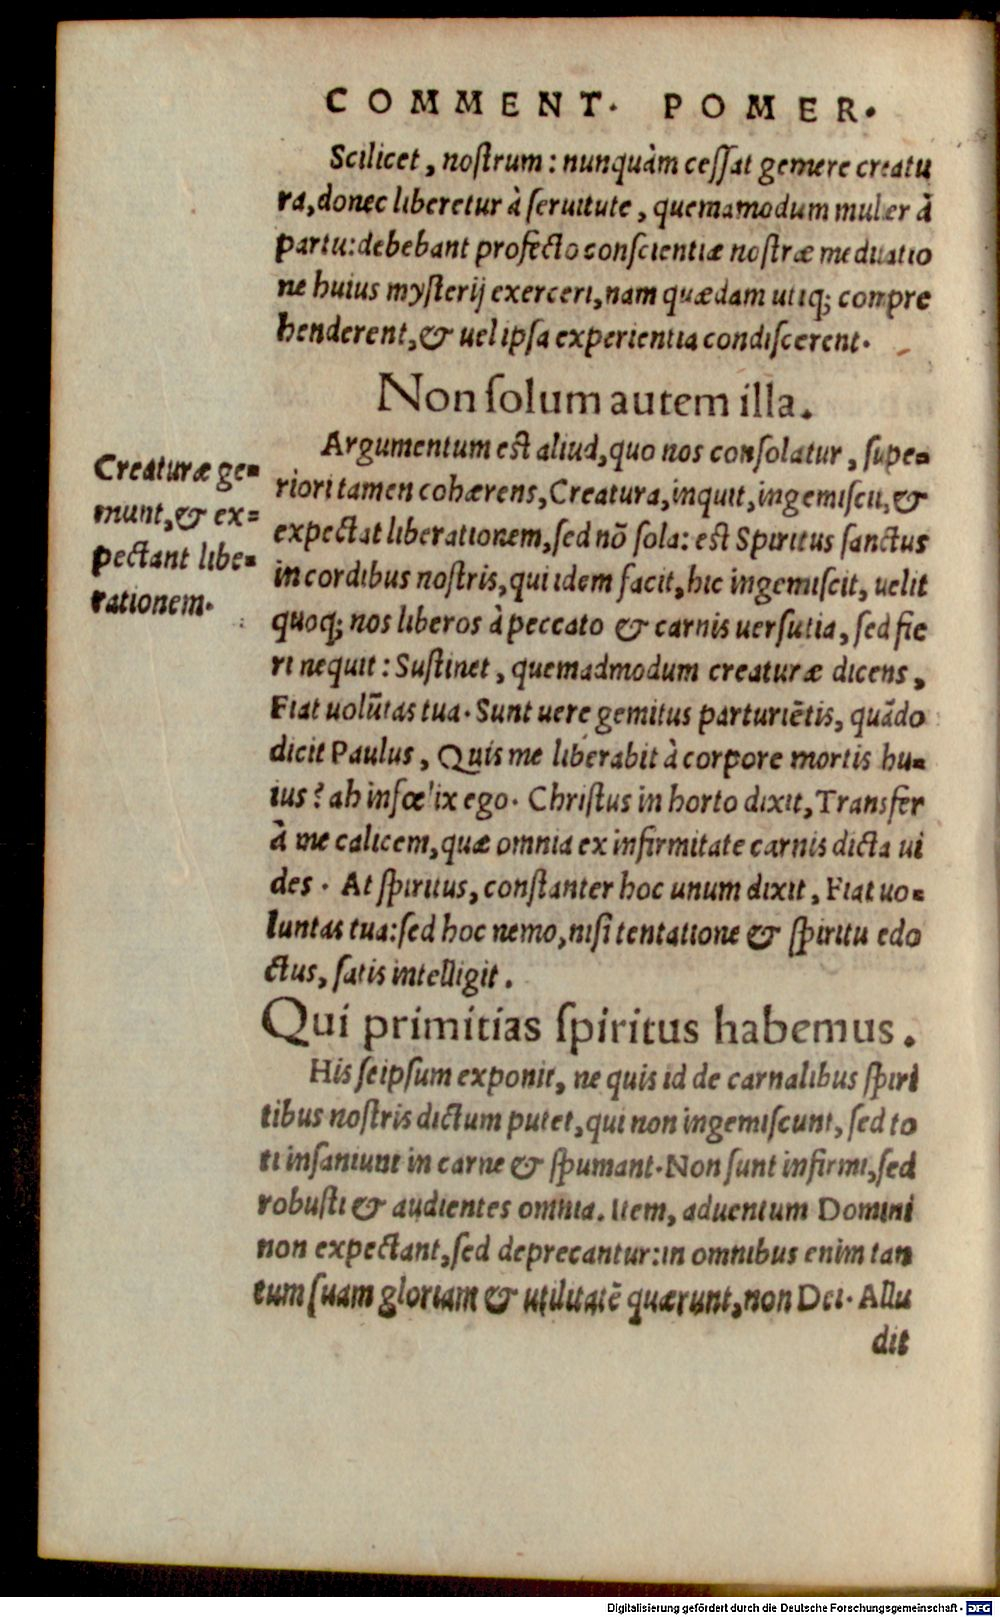 COMMENT. POMER.
Scilicet, noſtrum: nunquàm ceſſat gemere creatu
ra, donec liberetur à ſeruitute, quemamodum mulier à
partu: debebant profecto conſcientiæ noſtræ meditatio
ne huius myſterij exerceri, nam quædam utiq; compre
henderent, & uel ipſa experientia condiſcerent.
Non ſolum autem illa.
Argumentum eſt aliud, quo nos conſolatur, ſupe=
riori tamen cohærens, Creatura, inquit, ingemiſcit, &
expectat liberationem, ſed nō ſola: eſt Spiritus ſanctus
in cordibus noſtris, qui idem facit, hic ingemiſcit, uelit
quoq; nos liberos à peccato & carnis uerſutia, ſed fie
ri nequit: Suſtinet, quemadmodum creaturæ dicens,
Fiat uolūtas tua. Sunt uere gemitus parturiētis, quādo
dicit Paulus, Quis me liberabit à corpore mortis hu=
ius? ah infœlix ego. Chriſtus in horto dixit, Transfer
à me calicem, quæ omnia ex infirmitate carnis dicta ui
des. At ſpiritus, conſtanter hoc unum dixit, Fiat uo=
luntas tua: ſed hoc nemo, niſi tentatione & ſpiritu edo
ctus, ſatis intelligit.
Qui primitias ſpiritus habemus.
His ſeipſum exponit, ne quis id de carnalibus ſpiri
tibus noſtris dictum putet, qui non ingemiſcunt, ſed to
ti inſaniunt in carne & ſpumant. Non ſunt infirmi, ſed
robuſti & audientes omnia. Item, aduentum Domini
non expectant, ſed deprecantur: in omnibus enim tan
tum ſuam gloriam & utilitatē quærunt, non Dei. Allu
dit
Creaturæ ge=
munt, & ex=
pectant libe=
rationem.
Digitalisierung gefördert durch die Deutsche Forschungsgemeinschaft - DFG